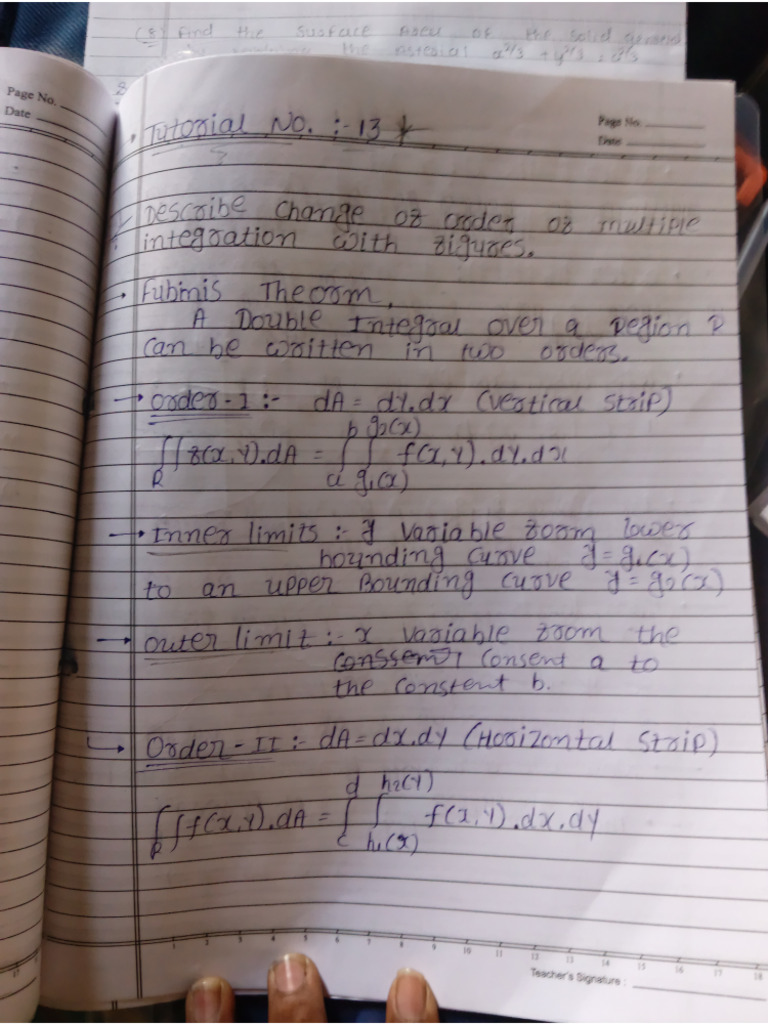 (8) Find the surface Area of the solid
the astroid x^2/3 + y^2/3 = a^2/3
Page No.
Date
Page No.
Date
Tutorial No. :- 13 *
Describe change of order of multiple
integration with figures.
→ Fubinis Theorm.
A Double Integral over a Region R
can be written in two orders.
→ Order-I :- dA = dy.dx (Vertical Strip)
∬R f(x,y).dA = ∫a^b ∫g1(x)^g2(x) f(x,y).dy.dx
→ Inner limits :- y variable form lower
bounding curve y = g1(x)
to an upper Bounding curve y = g2(x)
→ outer limit :- x variable from the
Consent a to
the constent b.
→ Order-II :- dA = dx.dy (Horizontal Strip)
∬R f(x,y).dA = ∫c^d ∫h1(y)^h2(y) f(x,y).dx.dy
1 2 3 4 5 6 7 8 9 10 11 12 13 14 15 16 17 18
17
Teacher's Signature :